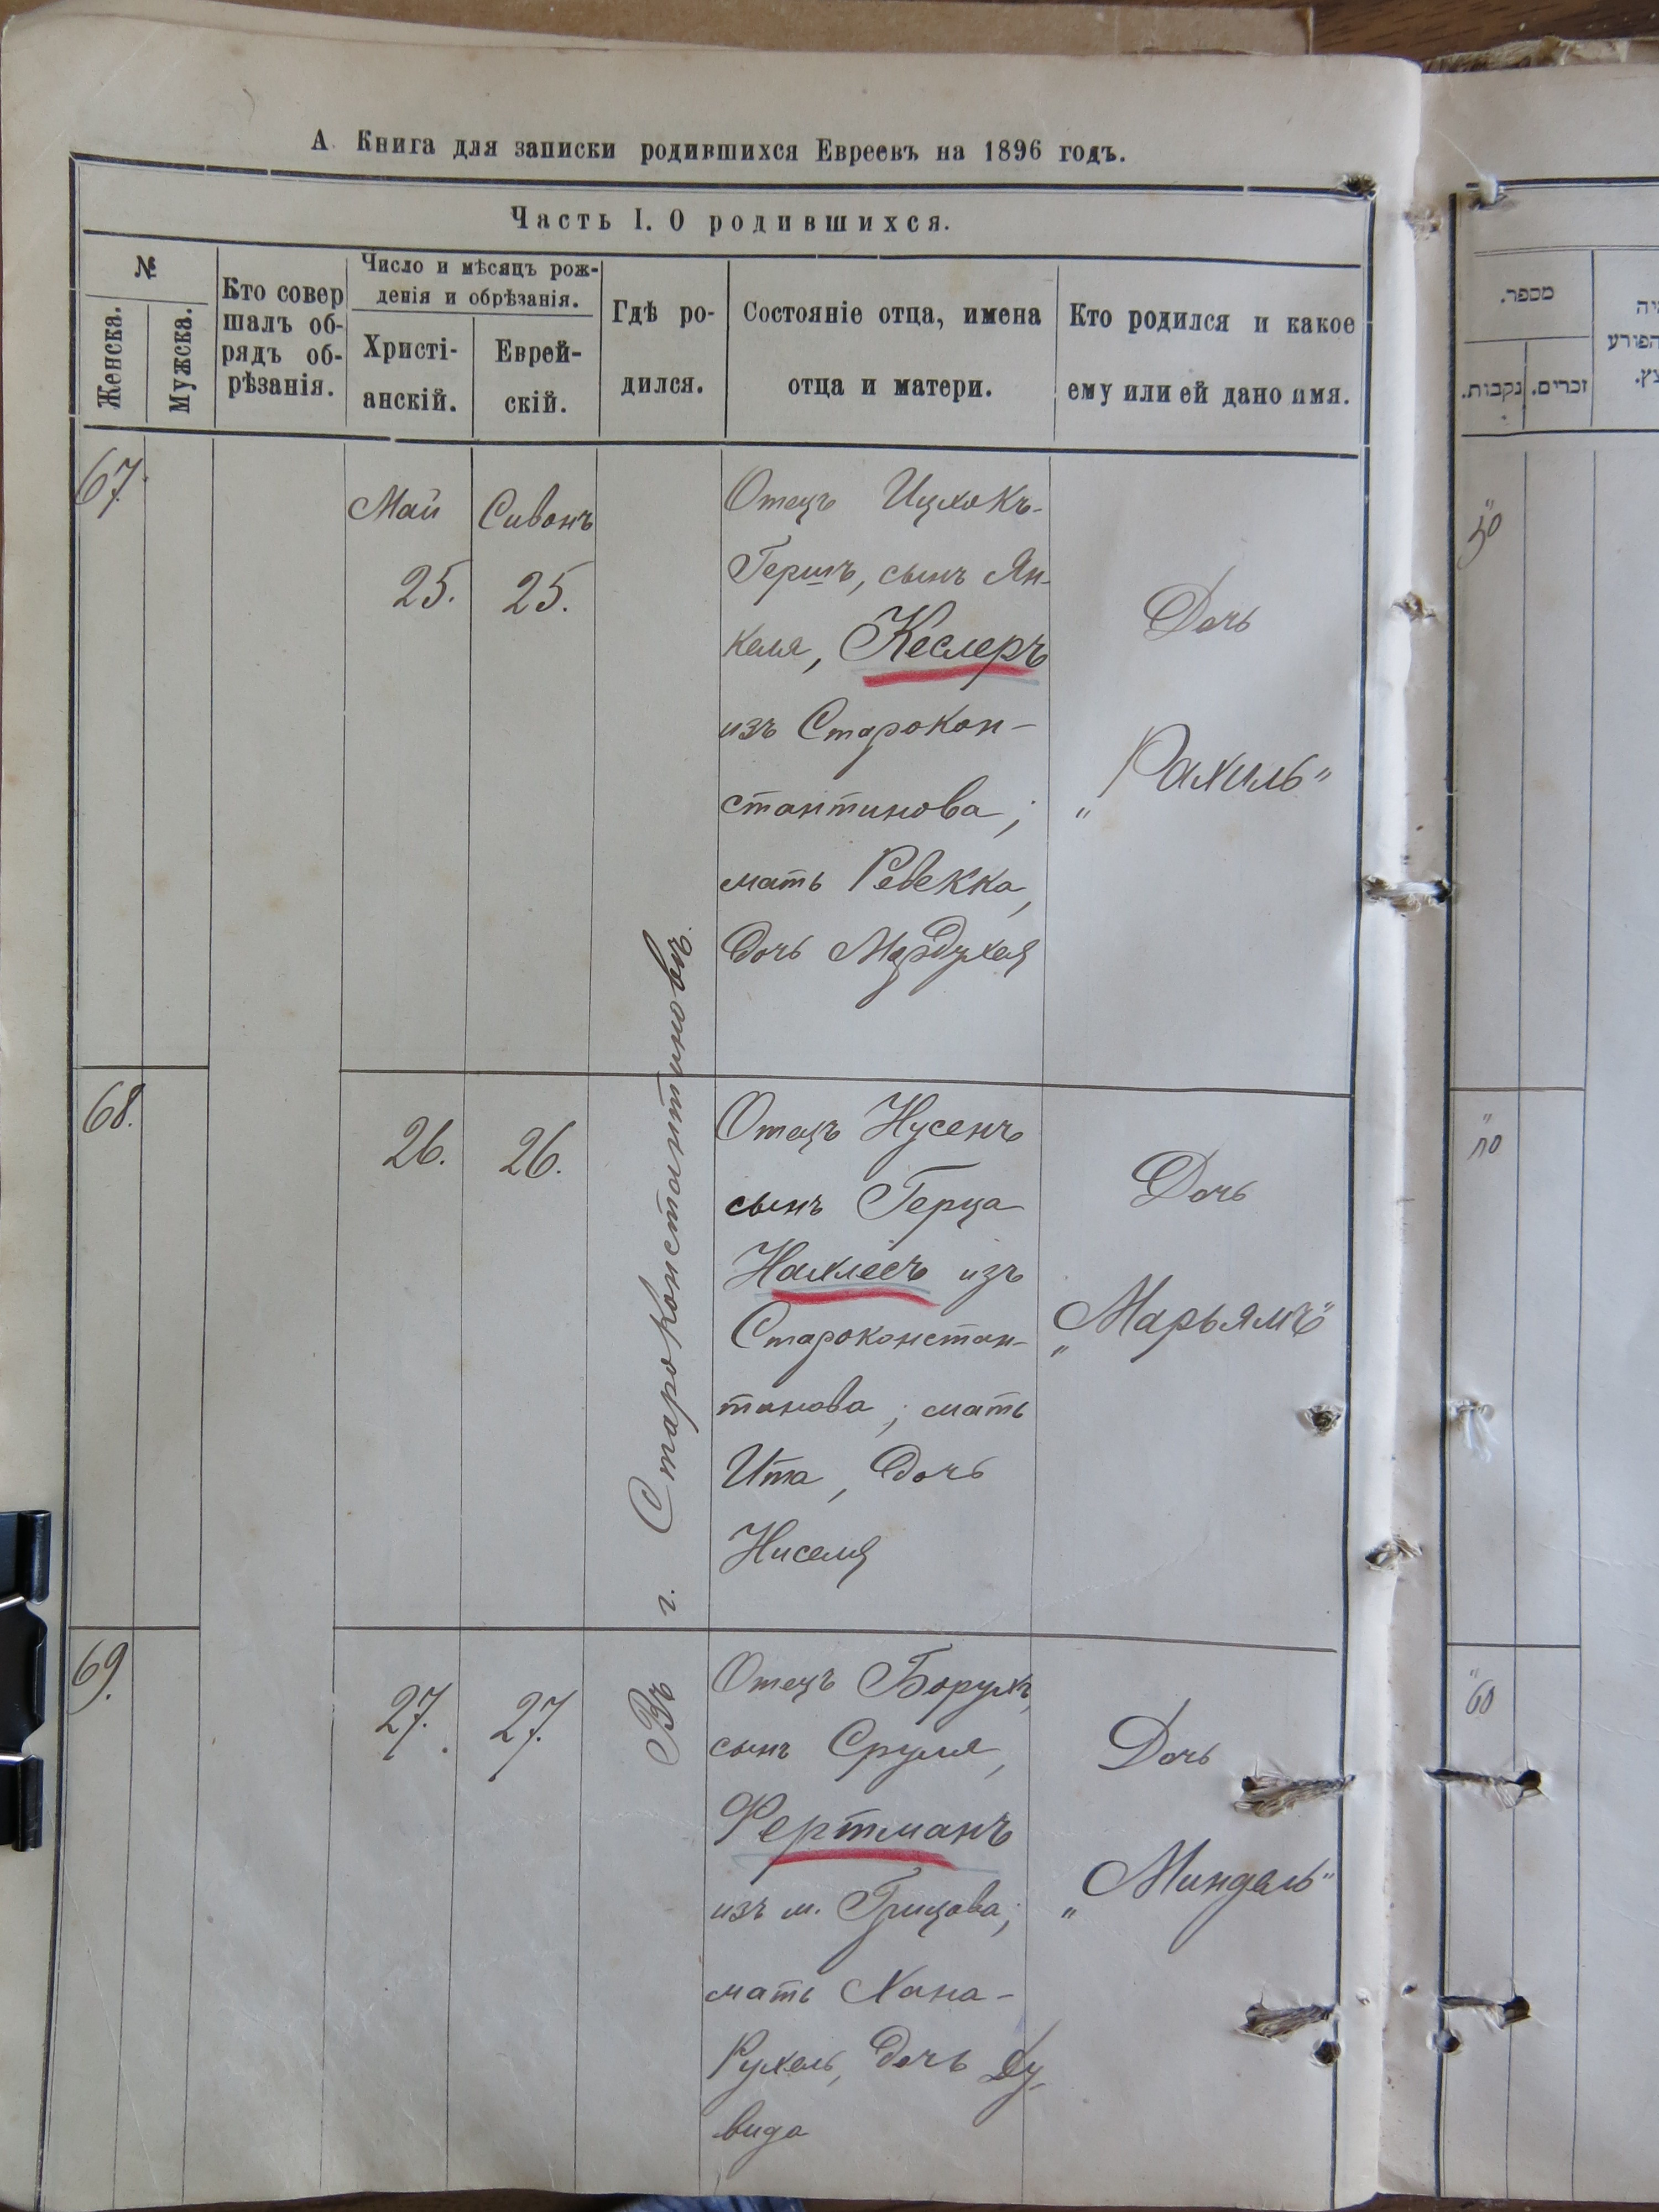 А. Книга для записки родившихся Евреевъ на 1896 годъ.
Часть I. О родившихся.
№
Женска.
Мужска.
Кто совер
шалъ об-
рядъ об-
рѣзанія.
Число и мѣсяцъ рож-
денія и обрѣзанія.
Христі-
анскій.
Еврей-
скій.
Гдѣ ро-
дился.
Состояніе отца, имена
отца и матери.
Кто родился и какое
ему или ей дано имя.
67.
Май
25.
Сивонъ
25.
Отецъ Ицхокъ-
Гершъ, сынъ Ян-
келя, Кеслеръ
изъ Старокон-
стантинова;
мать Ревекка,
дочь Мордухая
Дочь
„Рахиль"
68.
26.
26.
Отецъ Нусенъ
сынъ Герца
Нахлесъ изъ
Староконстан-
тинова; мать
Ита, дочь
Ниселя
Дочь
„Марьямъ"
69.
27.
27.
Въ г. Староконстантиновѣ.
Отецъ Борухъ,
сынъ Сруля,
Фертманъ
изъ м. Грицова;
мать Хана-
Рухель, дочь Ду-
вида
Дочь
„Миндель"
מספר.
נקבות.
זכרים.
הפורע